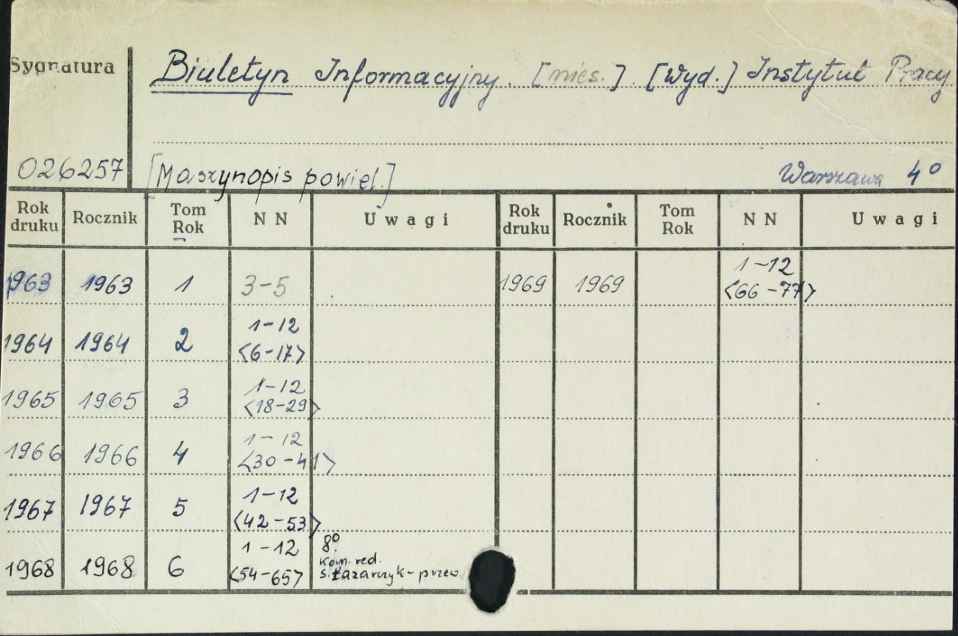 Sygnatura
Biuletyn Informacyjny. [mies.]. [Wyd.] Instytut Pracy
026257 [Maszynopis powiel.] Warszawa 4°
Rok druku Rocznik Tom Rok NN Uwagi Rok druku Rocznik Tom Rok NN Uwagi
1963 1963 1 3-5 1969 1969 1-12 <66-77>
1964 1964 2 1-12 <6-17>
1965 1965 3 1-12 <18-29>
1966 1966 4 1-12 <30-41>
1967 1967 5 1-12 <42-53>
1968 1968 6 1-12 <54-65> 8° Kom. red. S. Łazarczyk - przew.